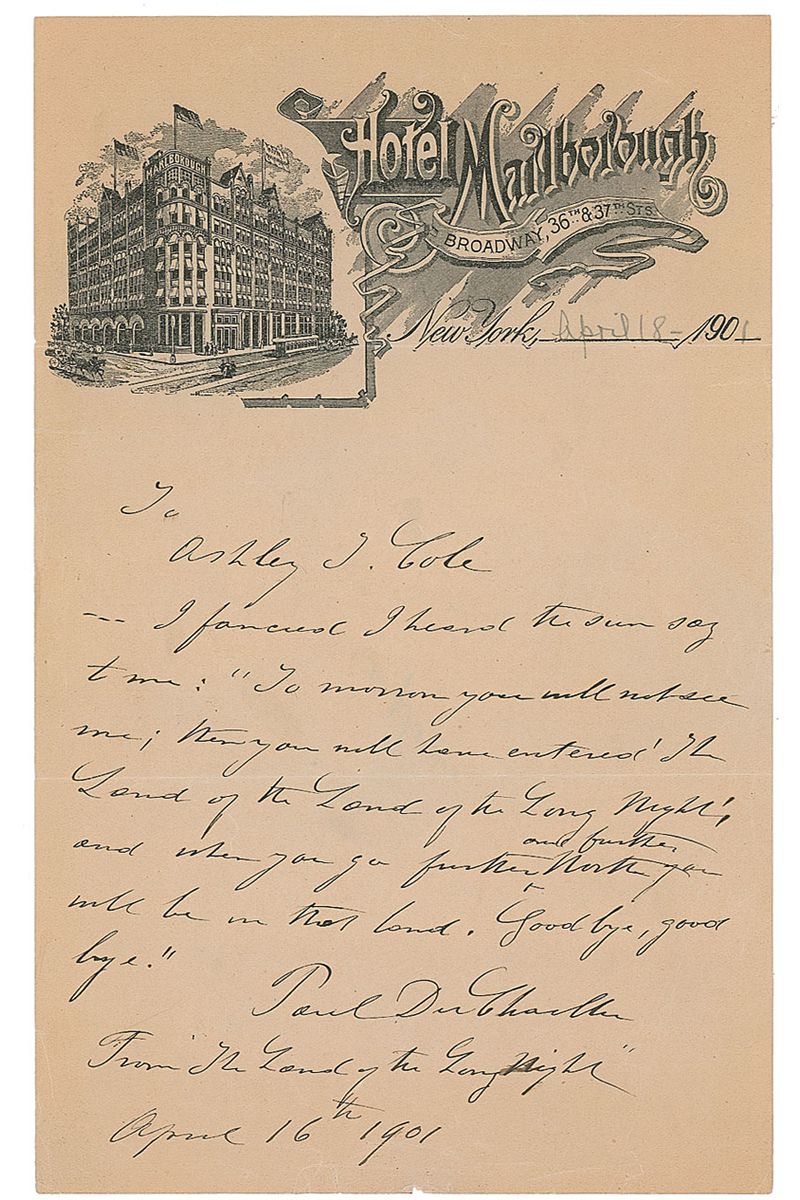 MARLBOROUGH
Hotel Marlborough
BROADWAY, 36TH & 37TH STS.
New York, April 18 - 1901
To
Ashley T. Cole
--- I fancied I heard the sun say
t me: "To morrow you will not see
me; then you will have entered 'The
Land of the Land of the Long Night',
and when you go further and further North you
will be in that land. Good bye, good
bye."
Paul Du Chaillu
From "The Land of the Long Night"
April 16th 1901